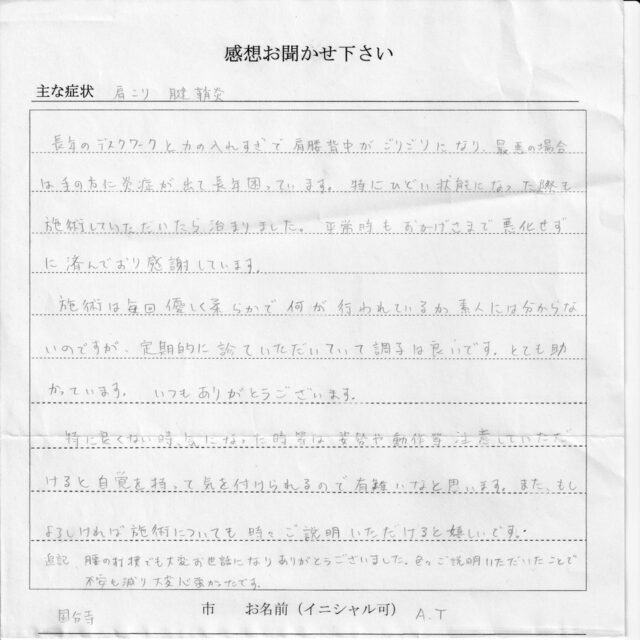 感想お聞かせ下さい
主な症状 肩こり 腱鞘炎
長年のデスクワークと力の入れすぎで肩腰背中がごりごりになり、最悪の場合
は手の方に炎症が出て長年困っています。特にひどい状態になった際も
施術していただいたら治まりました。平常時もおかげさまで悪化せず
に済んでおり感謝しています。
施術は毎回優しく柔らかで何が行われているか素人には分からな
いのですが、定期的に診ていただいていて調子は良いです。とても助
かっています。いつもありがとうございます。
特に良くない時、気になった時等は、姿勢や動作等注意していただ
けると自覚を持って気を付けられるので有難いなと思います。また、もし
よろしければ施術についても時々ご説明いただけると嬉しいです。
追記 腰の打撲でも大変お世話になりありがとうございました。色々ご説明いただいたことで
不安も減り大変心強かったです。
国分寺 市 お名前（イニシャル可） A.T